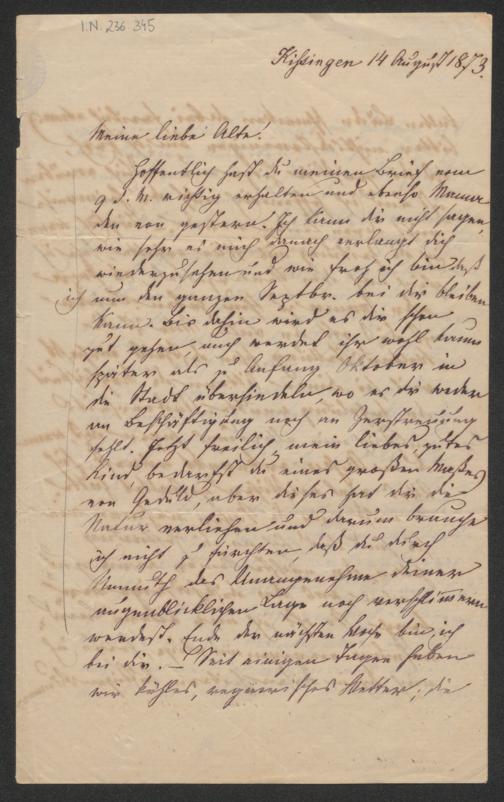 I.N. 236.345
Kissingen 14 August 1873.
Meine liebe Alte!
Hoffentlich hast du meinen Brief vom
9 d. M. richtig erhalten und ebenso Mama
den von gestern. Ich kann dir nicht sagen,
wie sehr es mich danach verlangt dich
wiederzusehen und wie froh ich bin daß
ich nun den ganzen Septbr. bei dir bleiben
kann. Bis dahin wird es dir schon
gut gehen, auch werdet ihr wohl kaum
später als zu Anfang Oktober in
die Stadt übersiedeln, wo es dir weder
an Beschäftigung noch an Zerstreuung
fehlt. Jetzt freilich, mein liebes, gutes
Kind, bedarfst du eines großen Maßes
von Geduld, aber dieses hat dir die
Natur verliehen und darum brauche
ich nicht zu fürchten, daß du durch
Unmuth das Unangenehme deiner
augenblicklichen Lage noch verschlimmern
werdest. Ende der nächsten Woche bin ich
bei dir. – Seit einigen Tagen haben
wir kühles, regnerisches Wetter; die